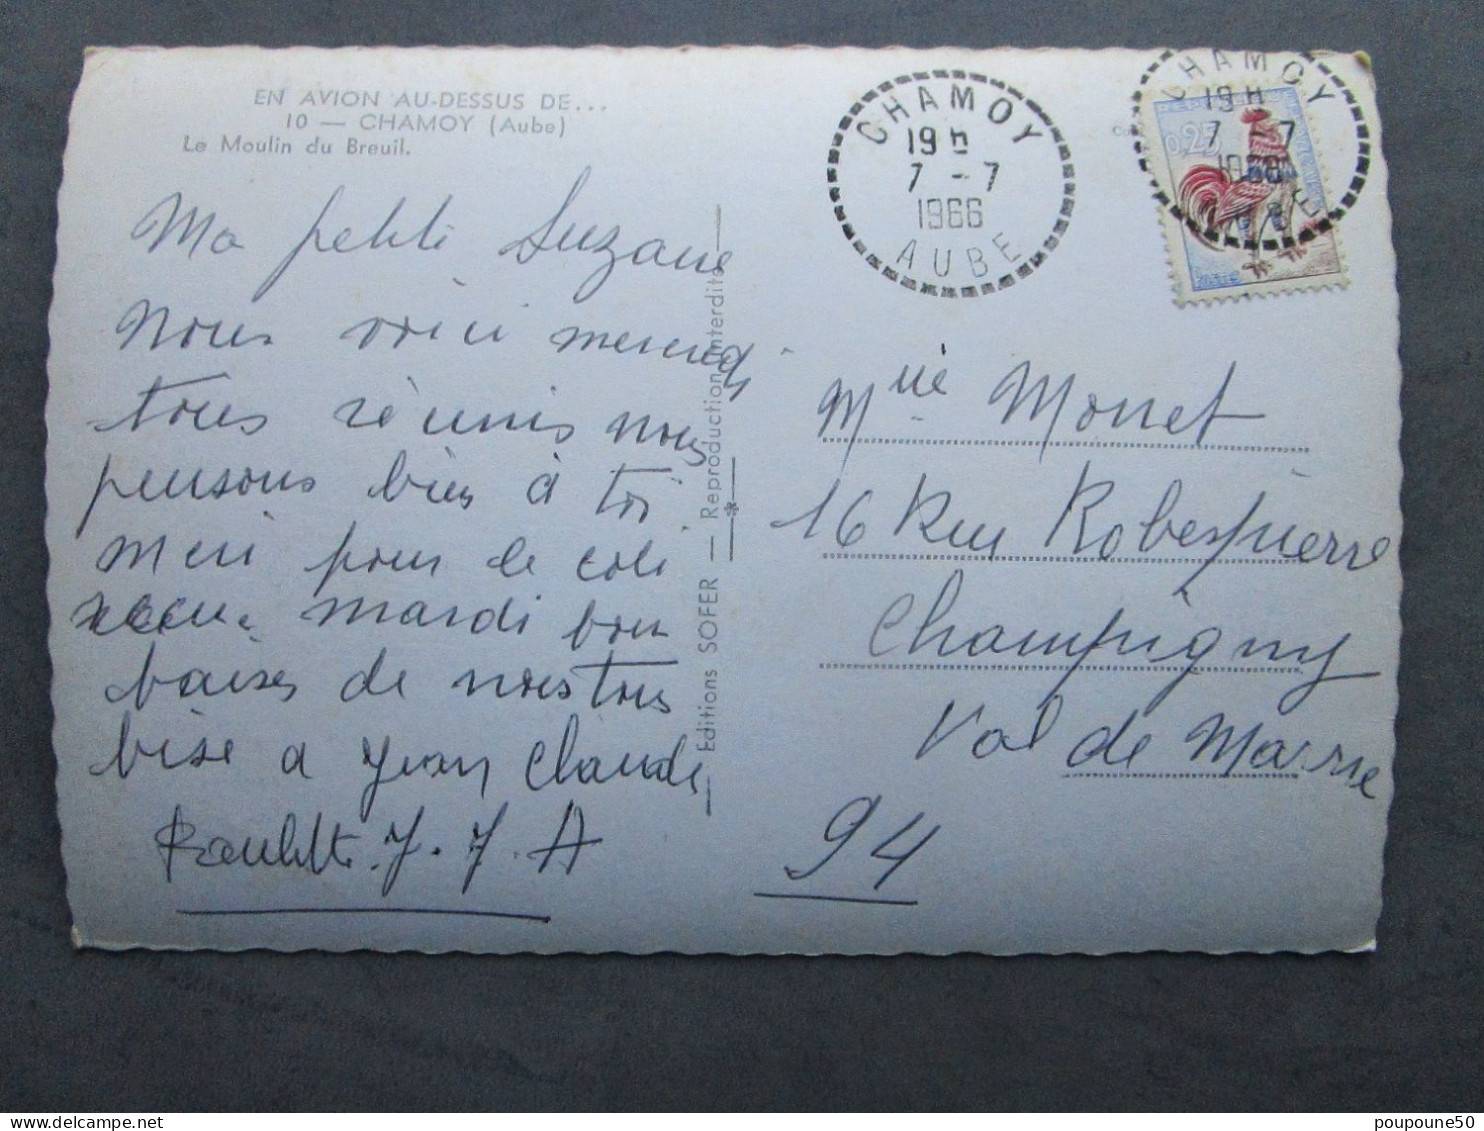 EN AVION AU-DESSUS DE...
10 — CHAMOY (Aube)
Le Moulin du Breuil.
Ma petite Suzane
nous voici mercredi
tous réunis nous
pensons bien à toi
merci pour le coli
mardi bon
baiser de nous tous
bise a Jean Claude
J. J. A
Editions SOFER — Reproduction interdite
CHAMOY
19 h
7 - 7
1966
AUBE
CHAMOY
19 H
7 - 7
0,25
POSTES
Mme Monet
16 Rue Robespierre
Champigny
Val de Marne
94
poupoune50